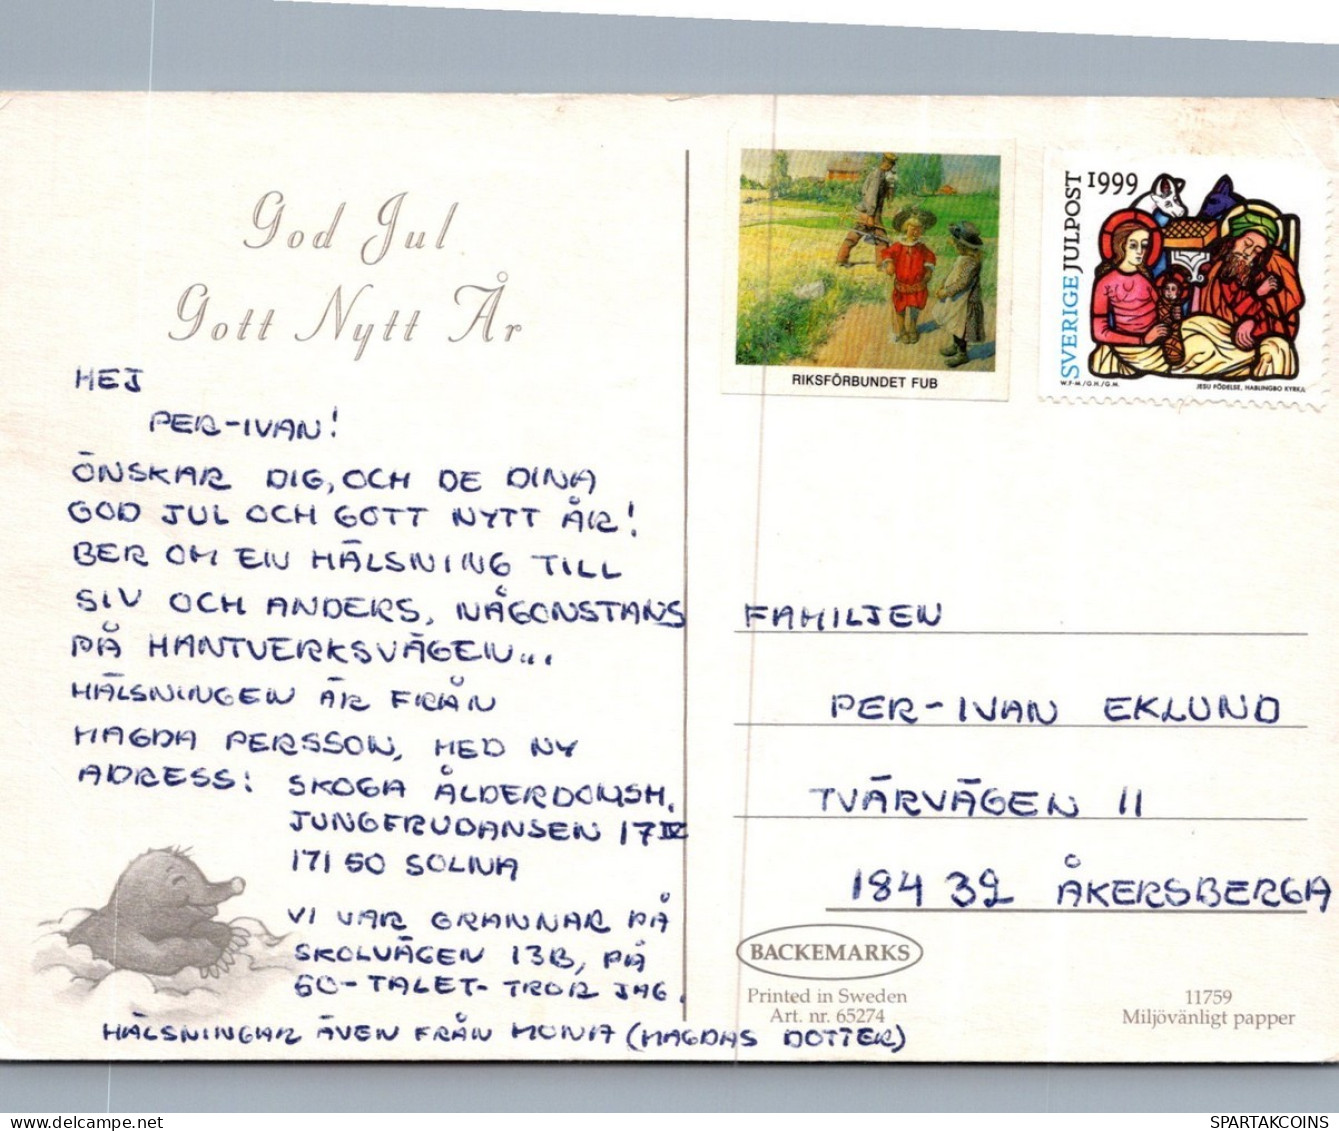 God Jul
Gott Nytt År
HEJ
PER-IVAN!
ÖNSKAR DIG, OCH DE DINA
GOD JUL OCH GOTT NYTT ÅR!
BER OM EN HÄLSNING TILL
SIV OCH ANDERS, NÅGONSTANS
PÅ HANTVERKSVÄGEN...
HÄLSNINGEN ÄR FRÅN
MAGDA PERSSON, MED NY
ADRESS: SKOGA ÅLDERDOMSH.
JUNGFRUDANSEN 17 IV
171 50 SOLNA
VI VAR GRANNAR PÅ
SKOLVÄGEN 13B, PÅ
60-TALET- TROR JAG.
HÄLSNINGAR ÄVEN FRÅN MONA (MAGDAS DOTTER)
RIKSFÖRBUNDET FUB
SVERIGE JULPOST
1999
W.F-M./G.H./G.M.
JESU FÖDELSE, HABLINGBO KYRKA
FAMILJEN
PER-IVAN EKLUND
TVÄRVÄGEN 11
184 32 ÅKERSBERGA
BACKEMARKS
Printed in Sweden
Art. nr. 65274
11759
Miljövänligt papper
SPARTAKCOINS.COM
delcampe.net
SPARTAKCOINS